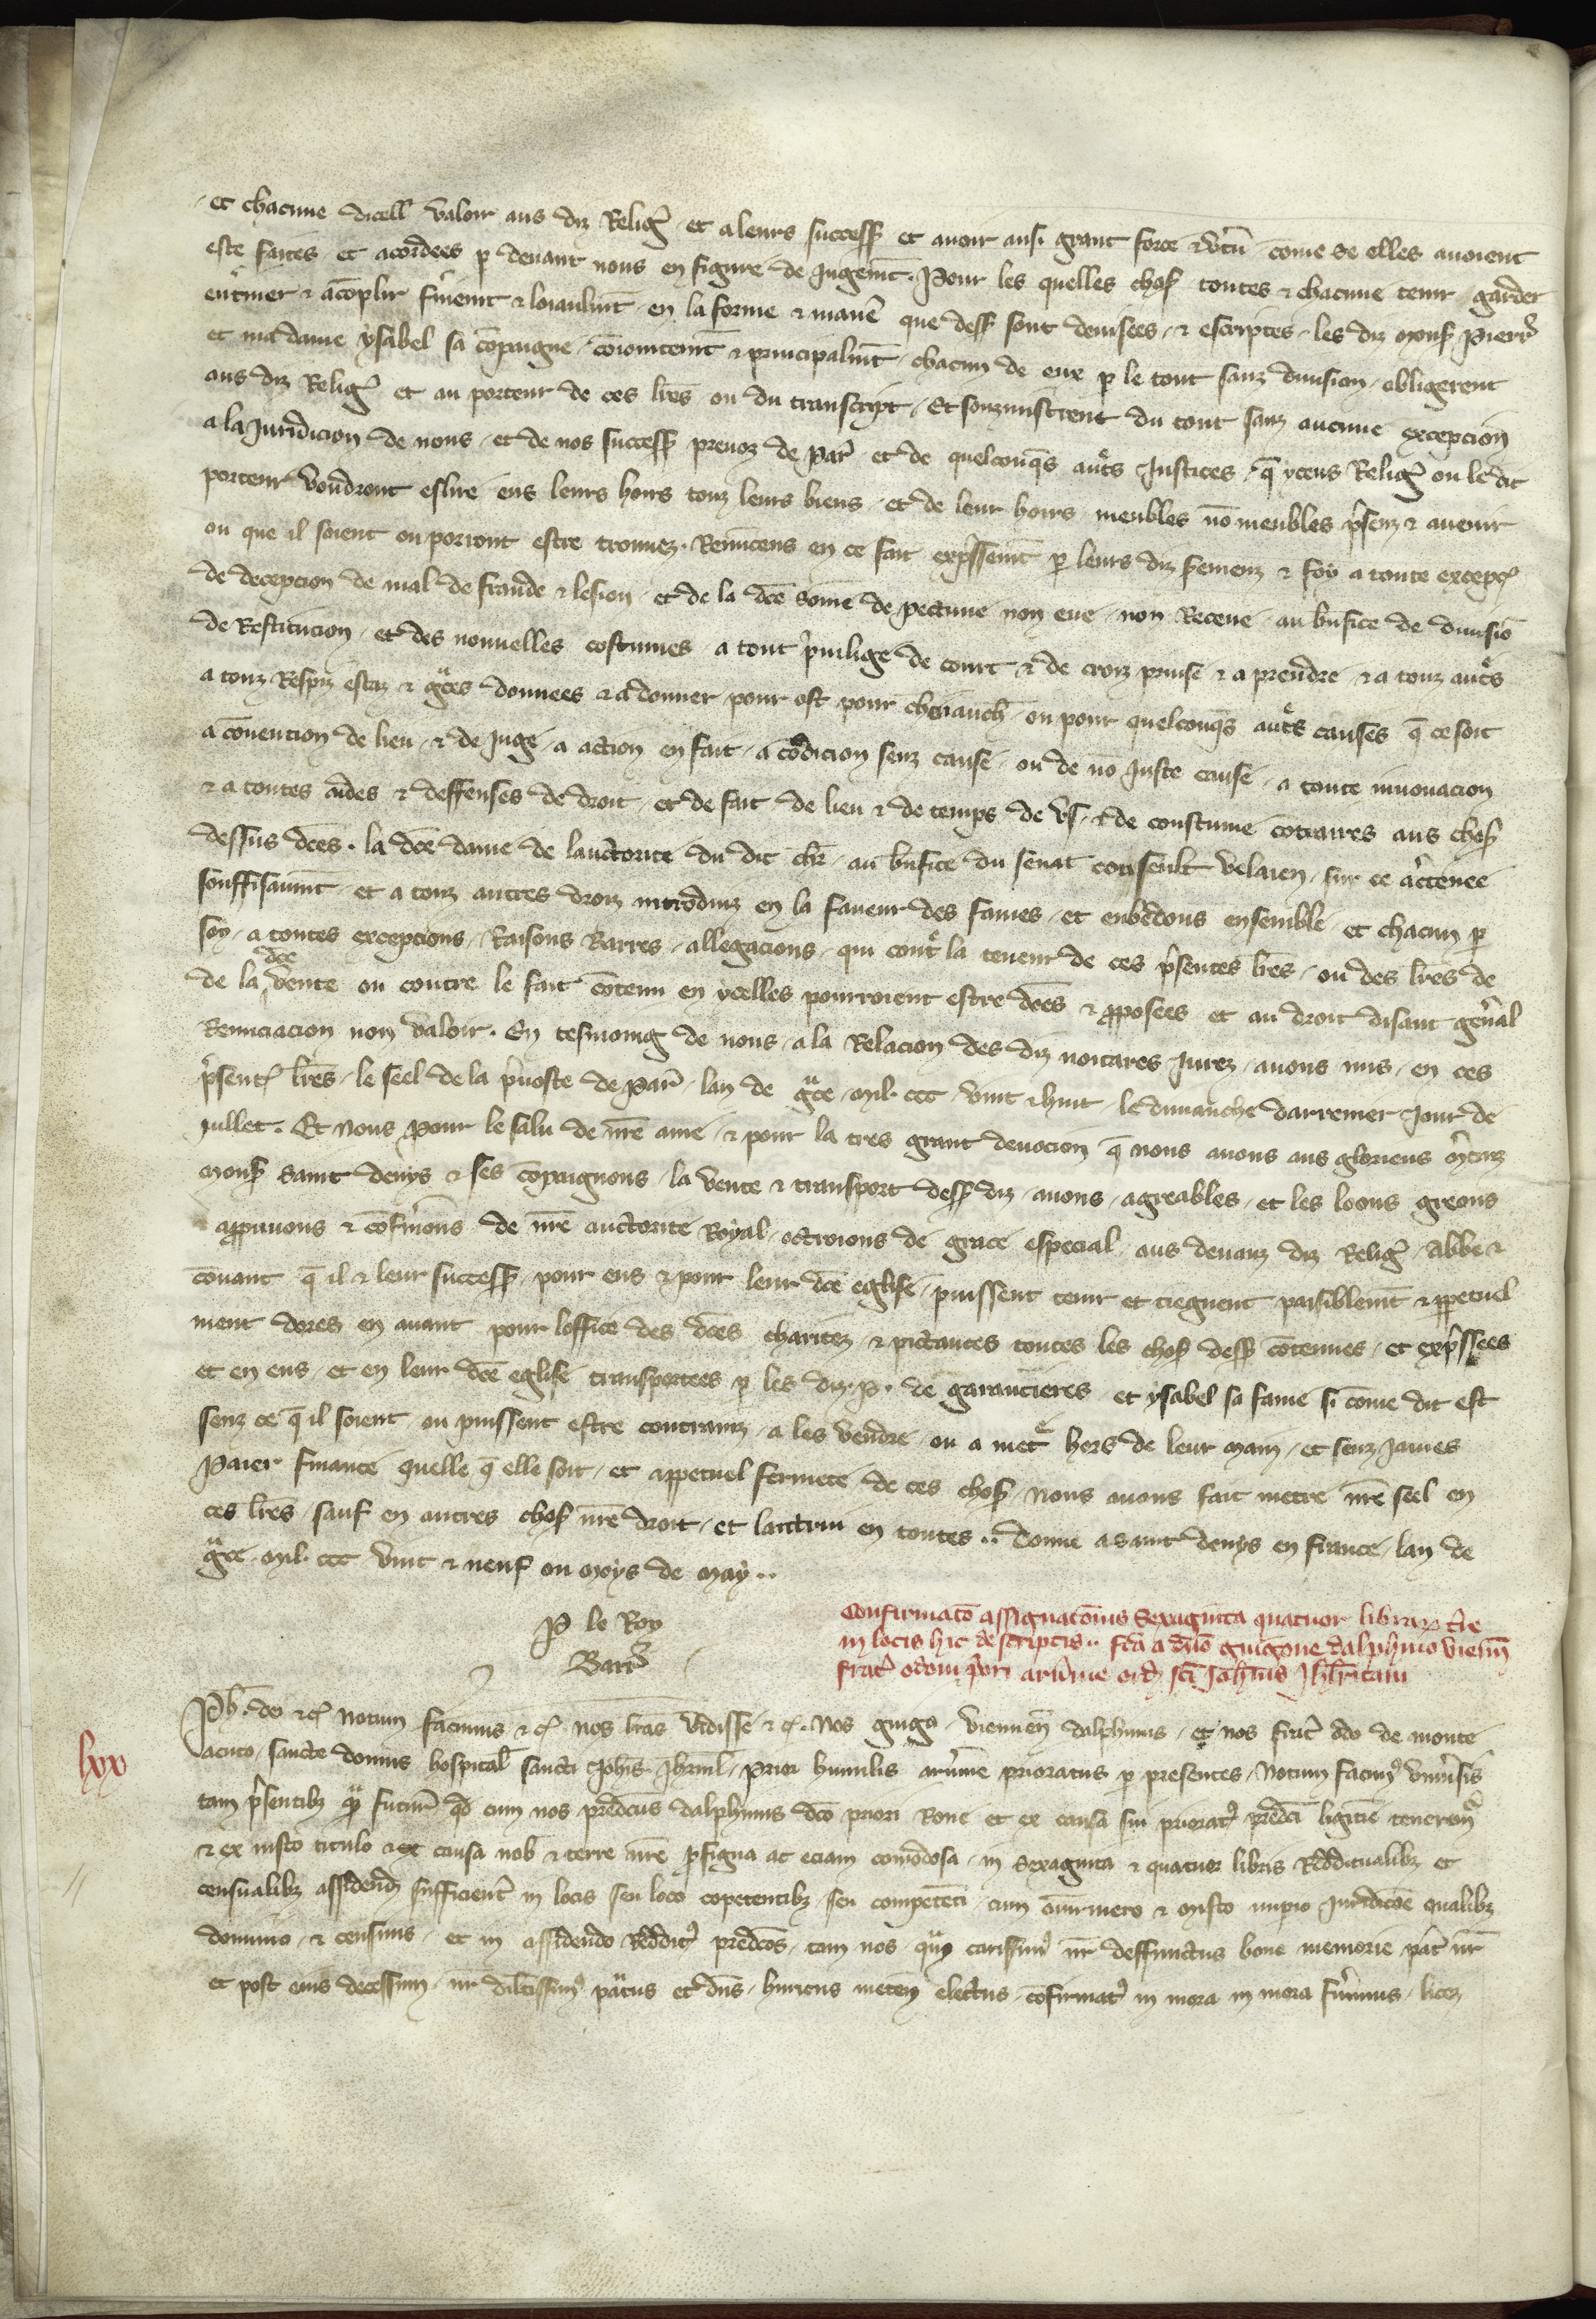 et chacune dicell valoir aus diz Relig et a leurs success et avoir ausi grant force & vtu come se elles avoient
este faites et acordees p devant nous en figure de Jugemt. Pour les quelles chos toutes & chacune tenir garder
enteriner & acoplir fermemt & loiaulmt en la forme & manie que dess sont devisees & escriptes les diz Mons Pierre
et ma dame ysabel sa compaigne coioinctemt & principalmt chacun de eux p le tout sanz division obligerent
aus diz Relig et au porteur de ces lres ou du transcript Et souzmistrent du tout sanz aucune excepcion
a la Juridicion de nous et de nos success prevoz de Par et de quelconqs autres Justices q yceus Relig ou le dit
porteur voudront eslire eus leurs hoirs touz leurs biens et de leur hoirs meubles no meubles psenz & avenir
ou que il soient ou porront estre trouvez. Renuceus en ce fait expssemt p leurs diz semenz & foy a toute excepc
de decepcion de mal de fraude & lesion et de la dce some de peccune non eue non Receue au bnfice de divisio
de Restitucion et des nouvelles costumes a tout privilige de court & de croiz prinse & a prendre & a touz autres
a touz Respiz estaz & gces donnees & a donner pour ost pour chevauch ou pour quelconqs autres causes q ce soit
a covencion de lieu & de Juge a action en fait a codicion senz cause ou de no Juste cause a toute innovacion
& a toutes aides & deffenses de droit et de fait de lieu & de temps de us & de coustume cotraires aus chos
dessus dces. la dce dame de lauctorite du dit chr au bnfice du senat conseult velaien sur ce actenee
souffisaumt et a touz autres droiz introduiz en la faveur des fames et enbedous ensemble et chacun p
soy a toutes excepcions Raisons Barres allegacions qui contre la teneur de ces psentes lres ou des lres de
de la dce vente ou contre le fait cotenu en ycelles pourroient estre dces & pposees et au droit disant genal
Renunciacion non valoir. En tesmoing de nous a la Relacion des diz noitares Jurez avons mis en ces
psentes lres le seel de la pvoste de Par lan de gce Mil. ccc vint & huit le dimanche darrenier Jour de
Jullet. Et Nous pour le salu de nre ame & pour la tres grant devocion q nous avons aus glorieus Mtirs
Mons saint denys & ses compaignons la vente & transport dess diz avons agreables et les loons greons
appuvons & cofmons de nre auctorite Royal octroions de grace especial aus devanz diz Relig Abbe &
covant q il & leur success pour eus & pour leur dce eglise puissent tenir et tiegnent paisiblemt & ppetuel
ment dores en avant pour loffice des dces charitez & pictances toutes les chos dess cotenues et expssees
et en eus et en leur dce eglise transportees p les diz. P. de garancieres et ysabel sa fame si come dit est
senz ce q il soient ou puissent estre contrainz a les vendre ou a metre hors de leur Main et senz James
Paier finance quelle q elle soit et appetuel fermete de ces chos Nous avons fait metre nre seel en
ces lres sauf en autres chos nre droit et lautrui en toutes.. donne a saint denys en france lan de
gce Mil. ccc vint & neuf ou Moys de May..
P le Roy
Barr
Confirmaco assignaconis sexaginta quatuor librar tre
in locis hic descriptis.. fca a dno guigone dalphino vienn
fratri odoni pori arunie ord sci Johnis Jhrlitani
lxx
Ph. dei &c Notum facimus &c nos lras vidisse &c. Nos guigo viennen dalphinus et nos frater odo de monte
acuto sancte domus hospital sancti Johis Jhrml Prior humilis arunie prioratus p presentes Notum facim univsis
tam psentibz q futur qd cum nos predcus dalphinus dco priori Rone et ex causa sui priorat predci ligitie teneremur
& ex iusto titulo & ex causa nob & terre nre pfigua ac eciam comodosa in sexaginta & quatuor libris Redditualibz et
censualibz assidend sufficient in locis seu loco copetentibz seu competeti cum omni mero & Misto impio Juridicoe qualibz
dominio & censivis et in assidendo Reddit predcos tam nos q carissim nr deffunctus bone memorie pater nr
et post eius decessum nr dilectissim patruus et dns henricus meten electus cofirmat in mora in mora fuimus licez